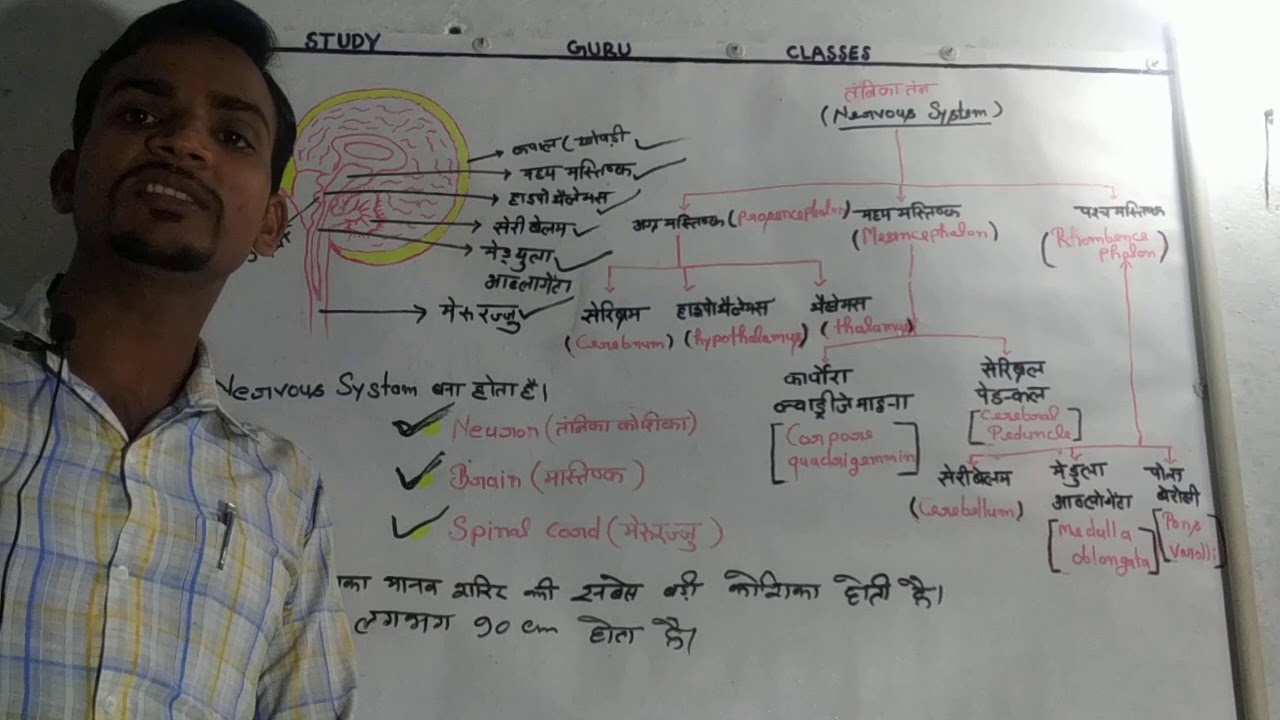 STUDY GURU CLASSES
तंत्रिका तंत्र
(Nervous System)
कपाल (खोपड़ी
मध्य मस्तिष्क
हाइपोथैलेमस
सेरीबेलम
मेड्युला
आबलागेंटा
मेरुरज्जु
अग्र मस्तिष्क (Prosencephalon)
मध्य मस्तिष्क
(Mesencephalon)
पश्च मस्तिष्क
(Rhombence
phalon)
सेरिब्रम
(Cerebrum)
हाइपोथैलेमस
(hypothalamus)
थैलेमस
(thalamus)
कार्पोरा
क्वाड्रीजेमाइना
[Corpora
quadrigemmin]
सेरिब्रल
पेडन्कल
[Cerebral
Peduncle]
सेरीबेलम
(Cerebellum)
मेडुला
आबलोगेंटा
[medulla
oblongata]
पोन्स
वेरोली
[Pons
varolli]
Nervous System बना होता है।
Neuron (तंत्रिका कोशिका)
Brain (मास्तिष्क)
Spinal cord (मेरुरज्जु)
का मानव शरिर की सबसे बड़ी कोशिका होती है।
लगभग 90 cm होता है।